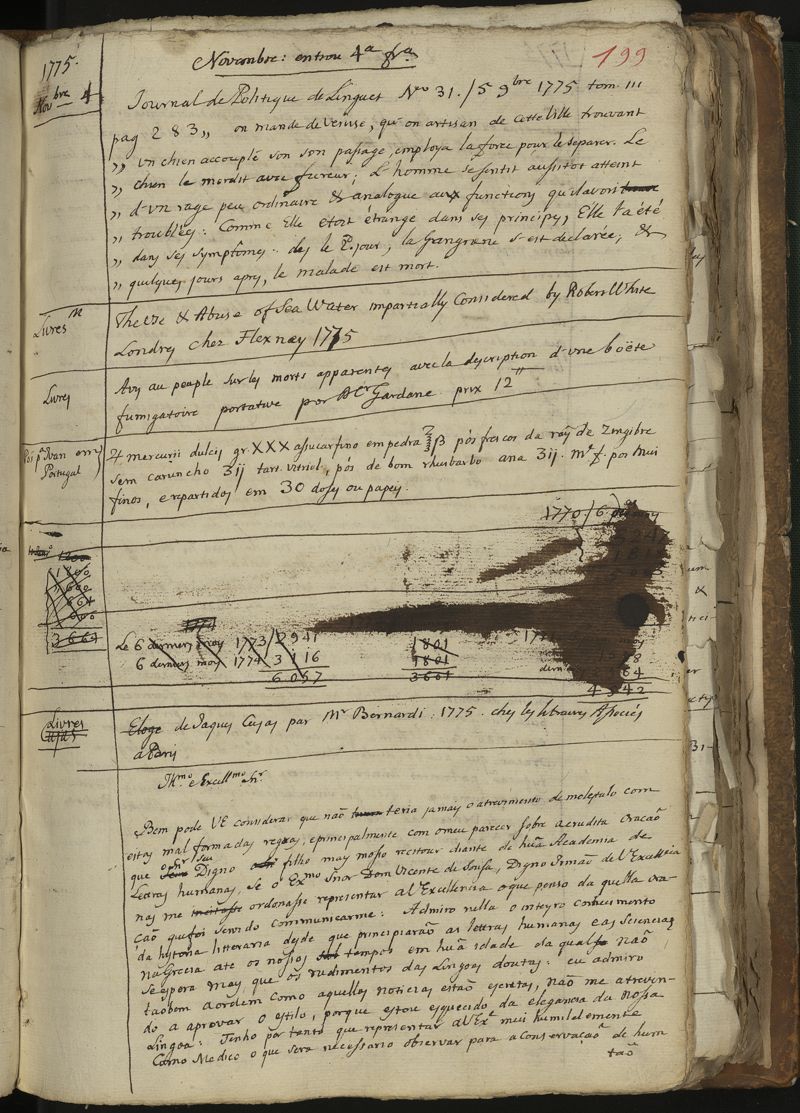 1775.
Novembre: entrou 4ª fª
199
Novbre 4
Journal de Politique de Linguet Nro 31. / 5 9bre 1775 tom. III
pag 283 „ on mande de Venise, qu'on artisan de cette Ville trouvant
„ un chien accouplé son son passage, employa la force pour le separer. Le
„ chien le mordit avec fureur; L'homme se sentit aussitot atteint
„ d'un rage peu ordinaire & analogue aux functions qu'il avoit
„ troublées: Comme Elle etoit étrange dans ses principes, Elle l'a été
„ dans ses symptomes. des le P. jour, la Gangrane s'est declarée, &
„ quelques jours apres, le malade est mort.
Livres
The Use & Abuse of Sea Water impartially Considered by Robert White
Londres chez Flexney 1775
Livres
Avis au peuple sur les morts apparentes avec la description d'une boëte
fumigatoire portative por Mr Gardane prix 12"
Pós pª Ivan em
Portugal
mercurii dulcis gr. XXX assucar fino em pedra ʒß pós frescos da raiz de Zingibre
sem caruncho ʒij tart. vitriol. pós de bom rhuibarbo ana ʒij. Me f. pos mui
finos, e repartidos em 30 doses ou papeis.
1770/6
1200
1800
3664
1774
Le 6 derniers moys 1773/2941
6 derniers moys 1774 3116
6.057
1801
1801
3661
64
4542
Livres
Cujas
Eloge de Jaques Cujas par Mr Bernardi: 1775. ches les libraires Associés
a Paris
Illmo e Excellmo Snr.
Bem pode VE considerar que não teria jamays o atrevimento de molestalo com
estas mal formadas regras, e principalmente com o meu parecer sobre a erudita Oração
que o Snr seu Digno filho mays moço recitou diante de huã Academia de
Letras humanas, se o Exmo Snor Dom Vicente de Sousa, Digno Irmão de V Excellencia
nas me ordonasse representar a V Excellencia o que penso da quella ora-
ção que foi servido communicarme: Admiro nella o inteyro conhecimento
da hystoria litteraria desde que principiarão as letras humanas e as sciencias
na Grecia ate os nossos tempos em huã idade da qual não
se espera mays que os rudimentos das Lingoas doutas: eu admiro
taobem a ordem como aquellas noticias estão escritas, não me atreven-
do a aprovar o estilo, porque estou esquecido da elegancia da nossa
Lingoa: Tenho por tanto que representar a V Exª mui humildemente
Como Medico o que sera necessario observar para a Conservação de hum
tão